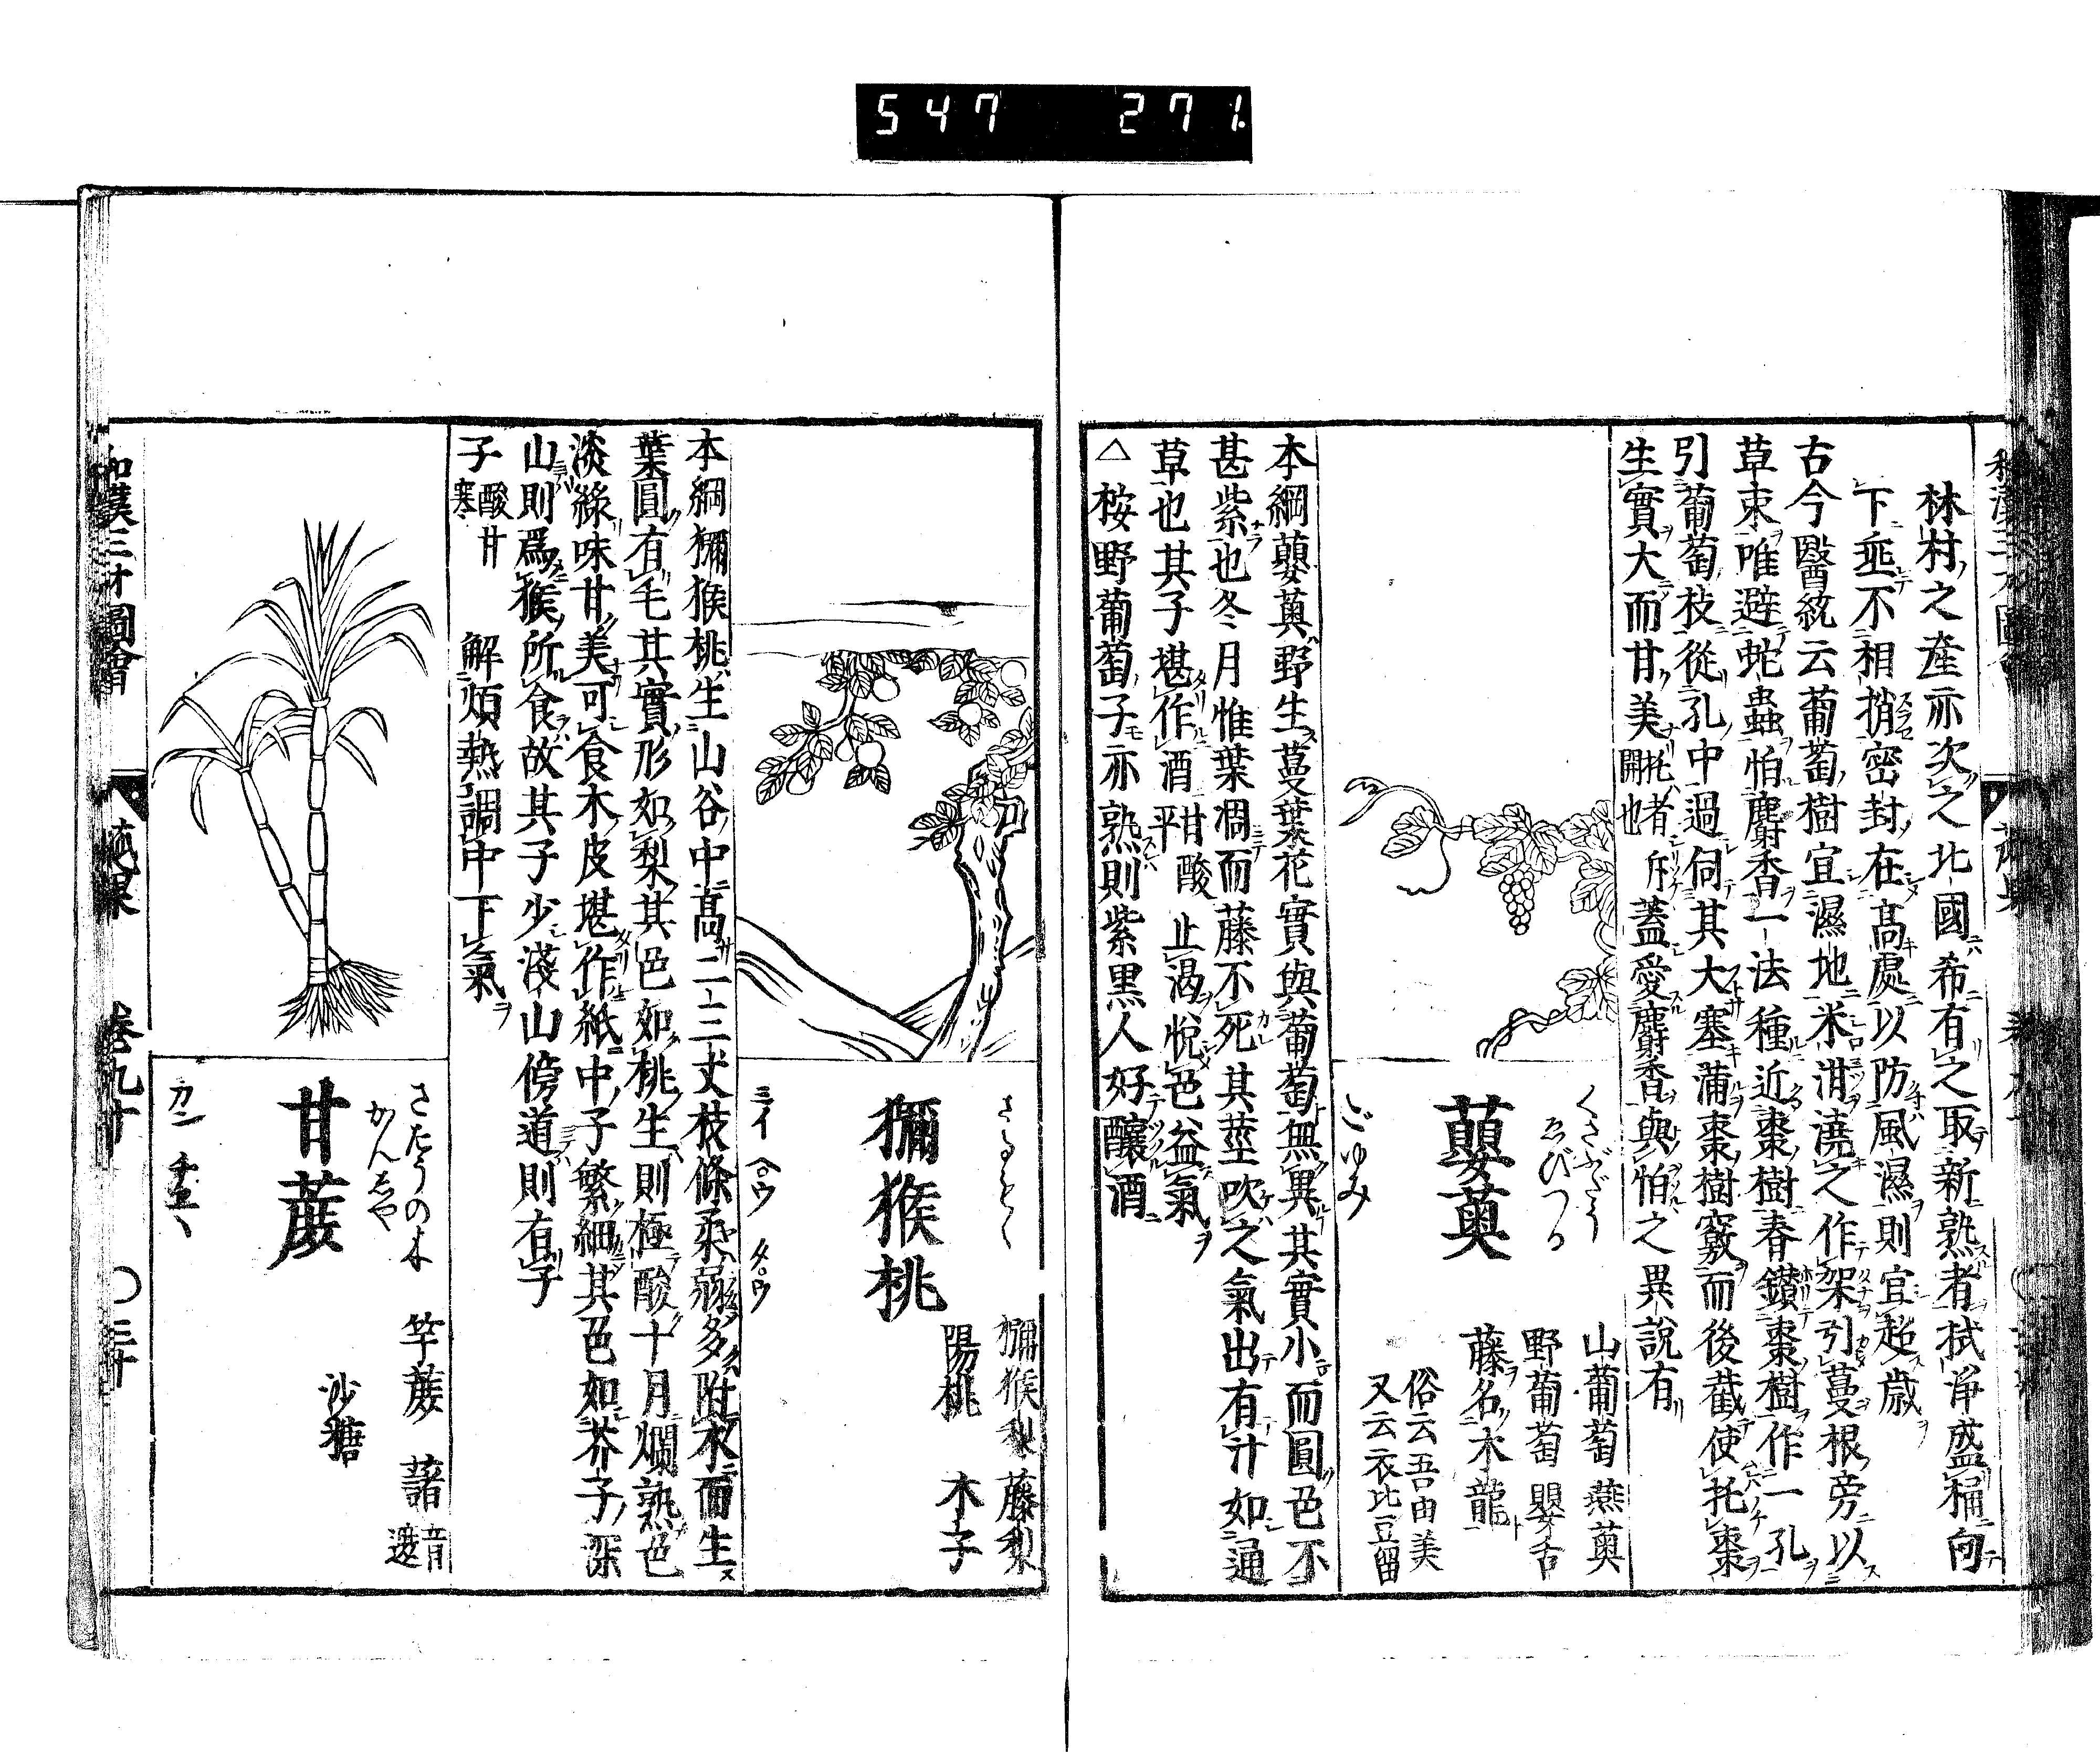 547 271
林村之産亦次之北國希有之取新熟者拭淨盛桶向
下乖不相捎密封在髙處以防風濕則宜超歳
古今醫統云葡萄樹宜濕地米泔澆之作架引蔓根旁以
草束唯避蛇蟲怕麝香一法種近棗樹春鑚棗樹作一孔
引葡萄枝從孔中過伺其大塞蒲棗樹竅而後截使托棗
生實大而甘美托者斥開也蓋愛麝香與怕之異説有
くさぶどう
ゑびつる
蘡薁
ごゆみ
山葡萄 燕薁
野葡萄 嬰舌
藤名木龍
俗云吾由美
又云衣比豆留
本綱蘡薁野生蔓葉花實與葡萄無異其實小而圓色不
甚紫也冬月惟葉凋而藤不死其莖吹之氣出有汁如通
草也其子堪作酒甘酸平止渇悦色益氣
△桉野葡萄子亦熟則紫黒人好釀酒
さるもゝ
獼猴桃
ミイ ヘ゜ウ タ゜ウ
獼猴梨 藤梨
陽桃 木子
本綱獼猴桃生山谷中髙二三丈枝條柔弱多附木而生
葉圓有毛其實形如梨其色如桃生則極酸十月爛熟色
淡綠味甘美可食木皮堪作紙中子繁細其色如芥子深
山則爲猴所食故其子少淺山傍道則有子
子酸甘寒 解煩熱調中下氣
さたうの木
かんしや
甘蔗
カン チエヽ
竿蔗 藷音遮
沙糖
和漢三才圖會 蓏果 卷九十 〇三十